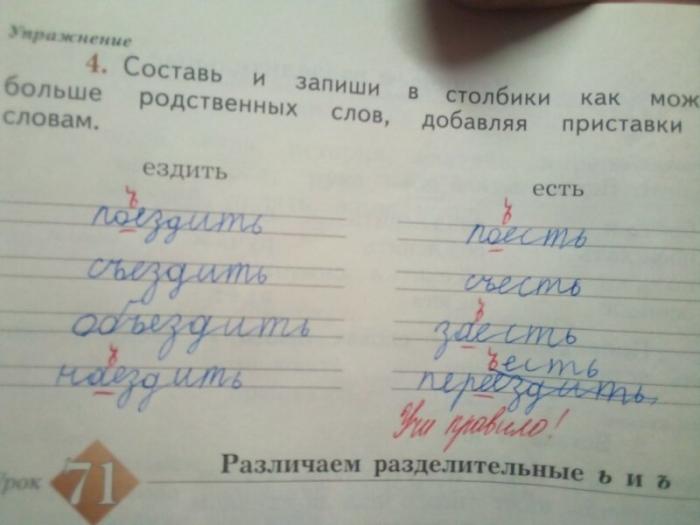 Упражнение
4. Составь и запиши в столбики как мож
больше родственных слов, добавляя приставки
словам.
ездить
есть
ъ
поездить
ъ
поесть
съездить
съесть
объездить
ъ
заесть
ъ
наездить
ъесть
переездить
Учи правило!
Урок 71
Различаем разделительные ь и ъ